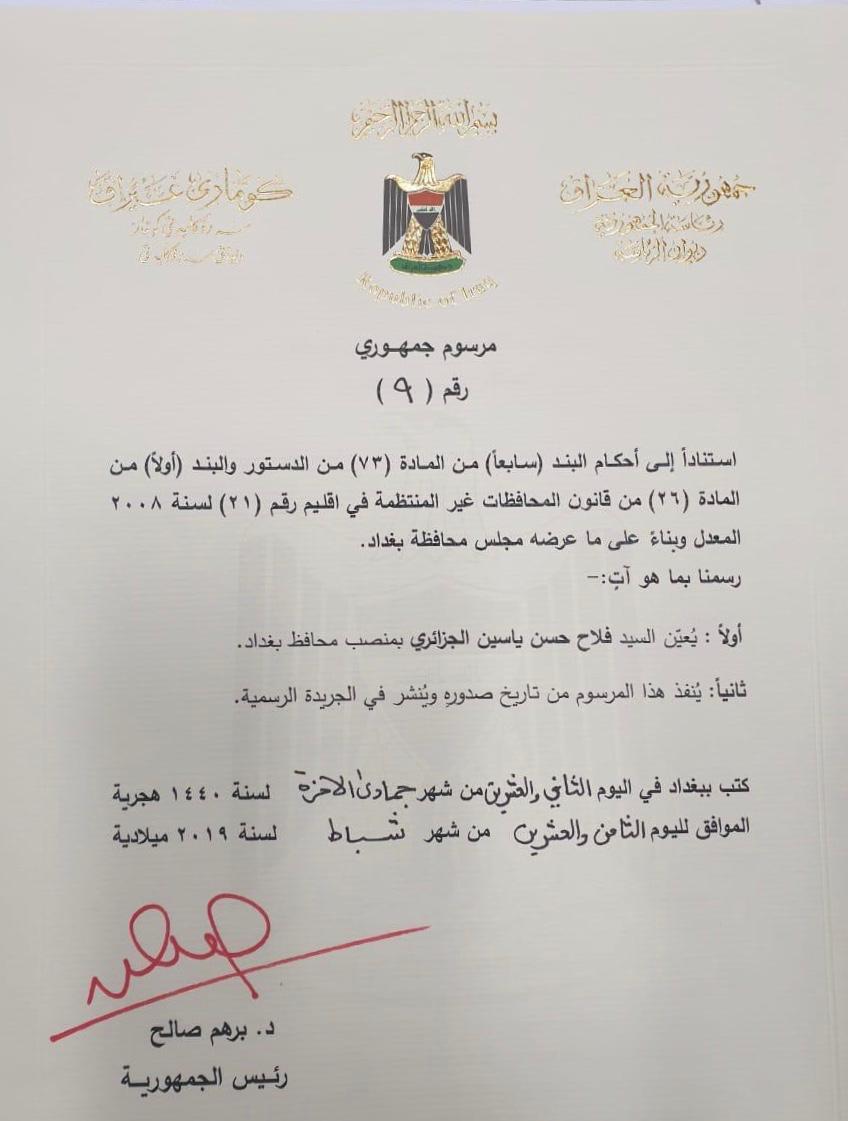 بسم الله الرحمن الرحيم
جمهورية العراق
رئاسة الجمهورية
ديوان الرئاسة
كۆماری عێراق
سەرۆکایەتی کۆمار
دیوانی سەرۆکایەتی
Republic of Iraq
مرسوم جمهوري
رقم (٩)
استناداً إلى أحكام البند (سابعاً) من المادة (٧٣) من الدستور والبند (أولاً) من
المادة (٢٦) من قانون المحافظات غير المنتظمة في اقليم رقم (٢١) لسنة ٢٠٠٨
المعدل وبناءً على ما عرضه مجلس محافظة بغداد.
رسمنا بما هو آتٍ:-
أولاً : يُعيّن السيد فلاح حسن ياسين الجزائري بمنصب محافظ بغداد.
ثانياً: يُنفذ هذا المرسوم من تاريخ صدورهِ ويُنشر في الجريدة الرسمية.
كتب ببغداد في اليوم الثاني والعشرين من شهر جمادى الآخرة لسنة ١٤٤٠ هجرية
الموافق لليوم الثامن والعشرين من شهر شباط لسنة ٢٠١٩ ميلادية
د. برهم صالح
رئيس الجمهورية